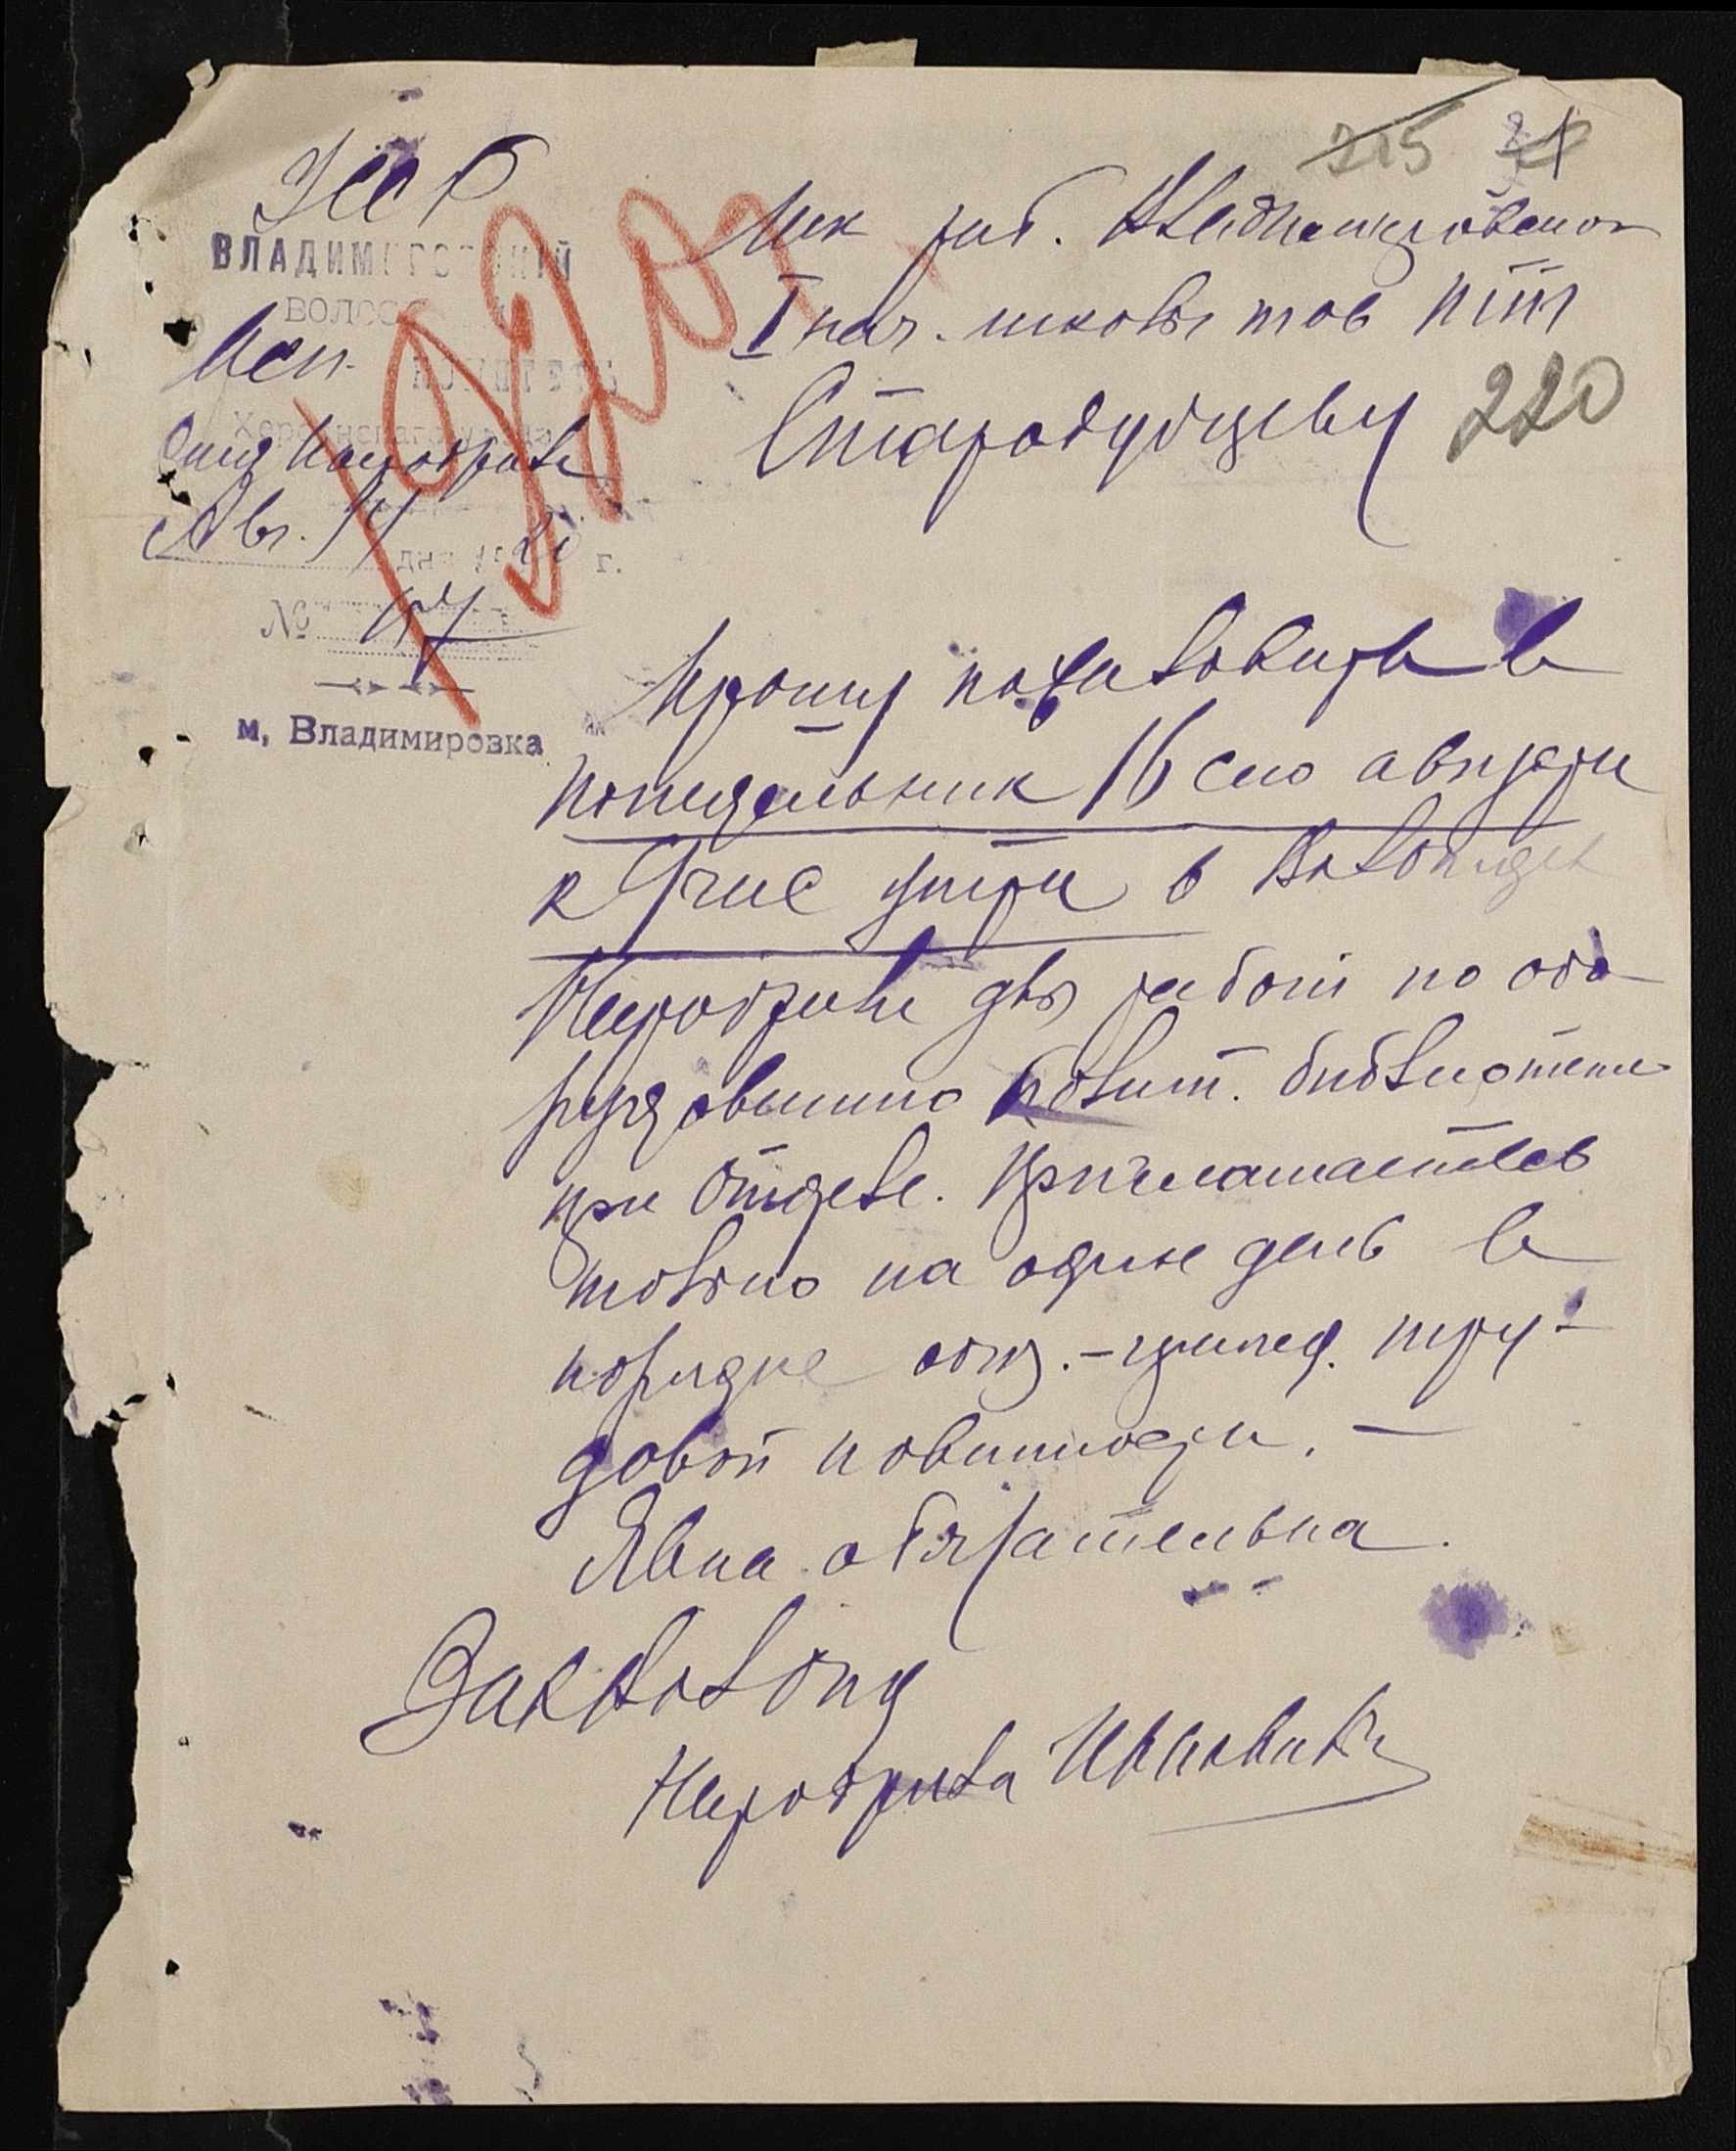 УССР
ВЛАДИМИРОВСКИЙ
ВОЛОС
Исп. КОМИТЕТЪ
Херсонскаго уезда
Отд Народрава
Авг. 14 дня 1920 г.
№ 67
м. Владимировка
1920
215 21
Шк раб. Владимировской
I нач. школы тов
Стародубцеву 220
Прошу пожаловать в
понедельник 16 сего августа
к 9 час утра в Волотдел
Народрава для работ по обо
рудованию полит. библиотеки
при Отделе. Приглашаетесь
только на один день в
порядке общ. - трудо
довой повинности. —
Явка обязательна.
ЗавВолотд
Народрава